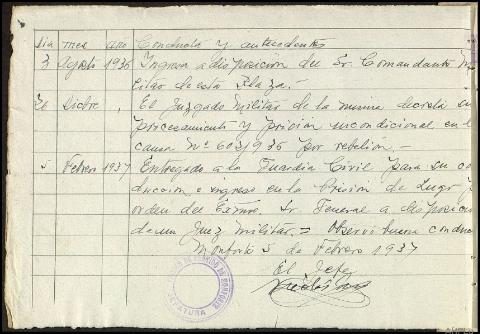 Dia mes año Conducta y antecedentes
3 Agosto 1936 Ingresa a disposición del Sr. Comandante Mi
litar de esta Plaza.-
26 Dicbre , El Juzgado Militar de la misma decreta su
procesamiento y prisión incondicional en l
causa Nº 603/936 por rebelión.-
5 Febrero 1937 Entregado a la Guardia Civil para su co
ducción e ingreso en la Prisión de Lugo p
orden del Excmo. Sr. General a disposicio
de un Juez militar.= Observó buena conduc
Monforte 5 de Febrero 1937
El Jefe,
PARTIDO DE MONFORTE
JEFATURA